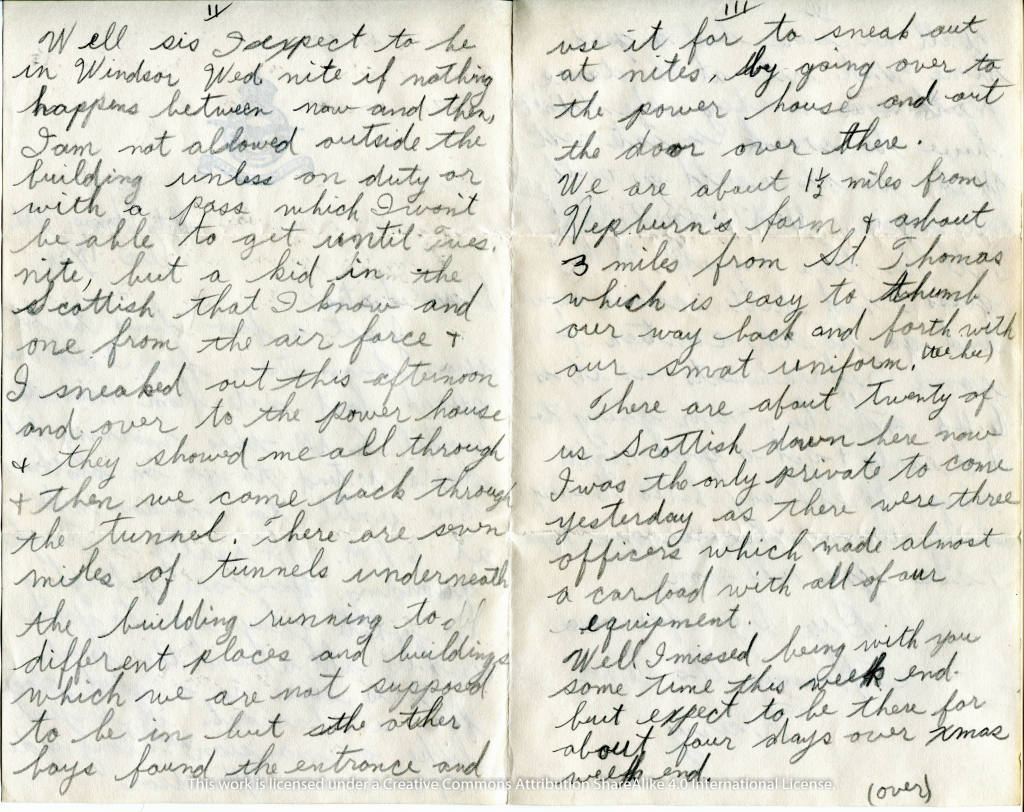 II
Well sis I expect to be
in Windsor Wed nite if nothing
happens between now and then,
I am not allowed outside the
building unless on duty or
with a pass which I won't
be able to get until Tues.
nite, but a kid in the
Scottish that I know and
one from the air force +
I sneaked out this afternoon
and over to the power house
& they showed me all through
+ then we came back through
the tunnel. There are seven
miles of tunnels underneath
the building running to
different places and buildings
which we are not supposed
to be in but the other
boys found the entrance and
III
use it for to sneak out
at nites, by going over to
the power house and out
the door over there.
We are about 1½ miles from
Hepburn's farm & about
3 miles from St Thomas
which is easy to thumb
our way back and forth with
our smat uniform. (tee hee)
There are about Twenty of
us Scottish down here now
I was the only private to come
yesterday as there were three
officers which made almost
a carload with all of our
equipment.
Well I missed being with you
some time this week end.
but expect to be there for
about four days over xmas
week end.
(over)
This work is licensed under a Creative Commons Attribution ShareAlike 4.0 International License.